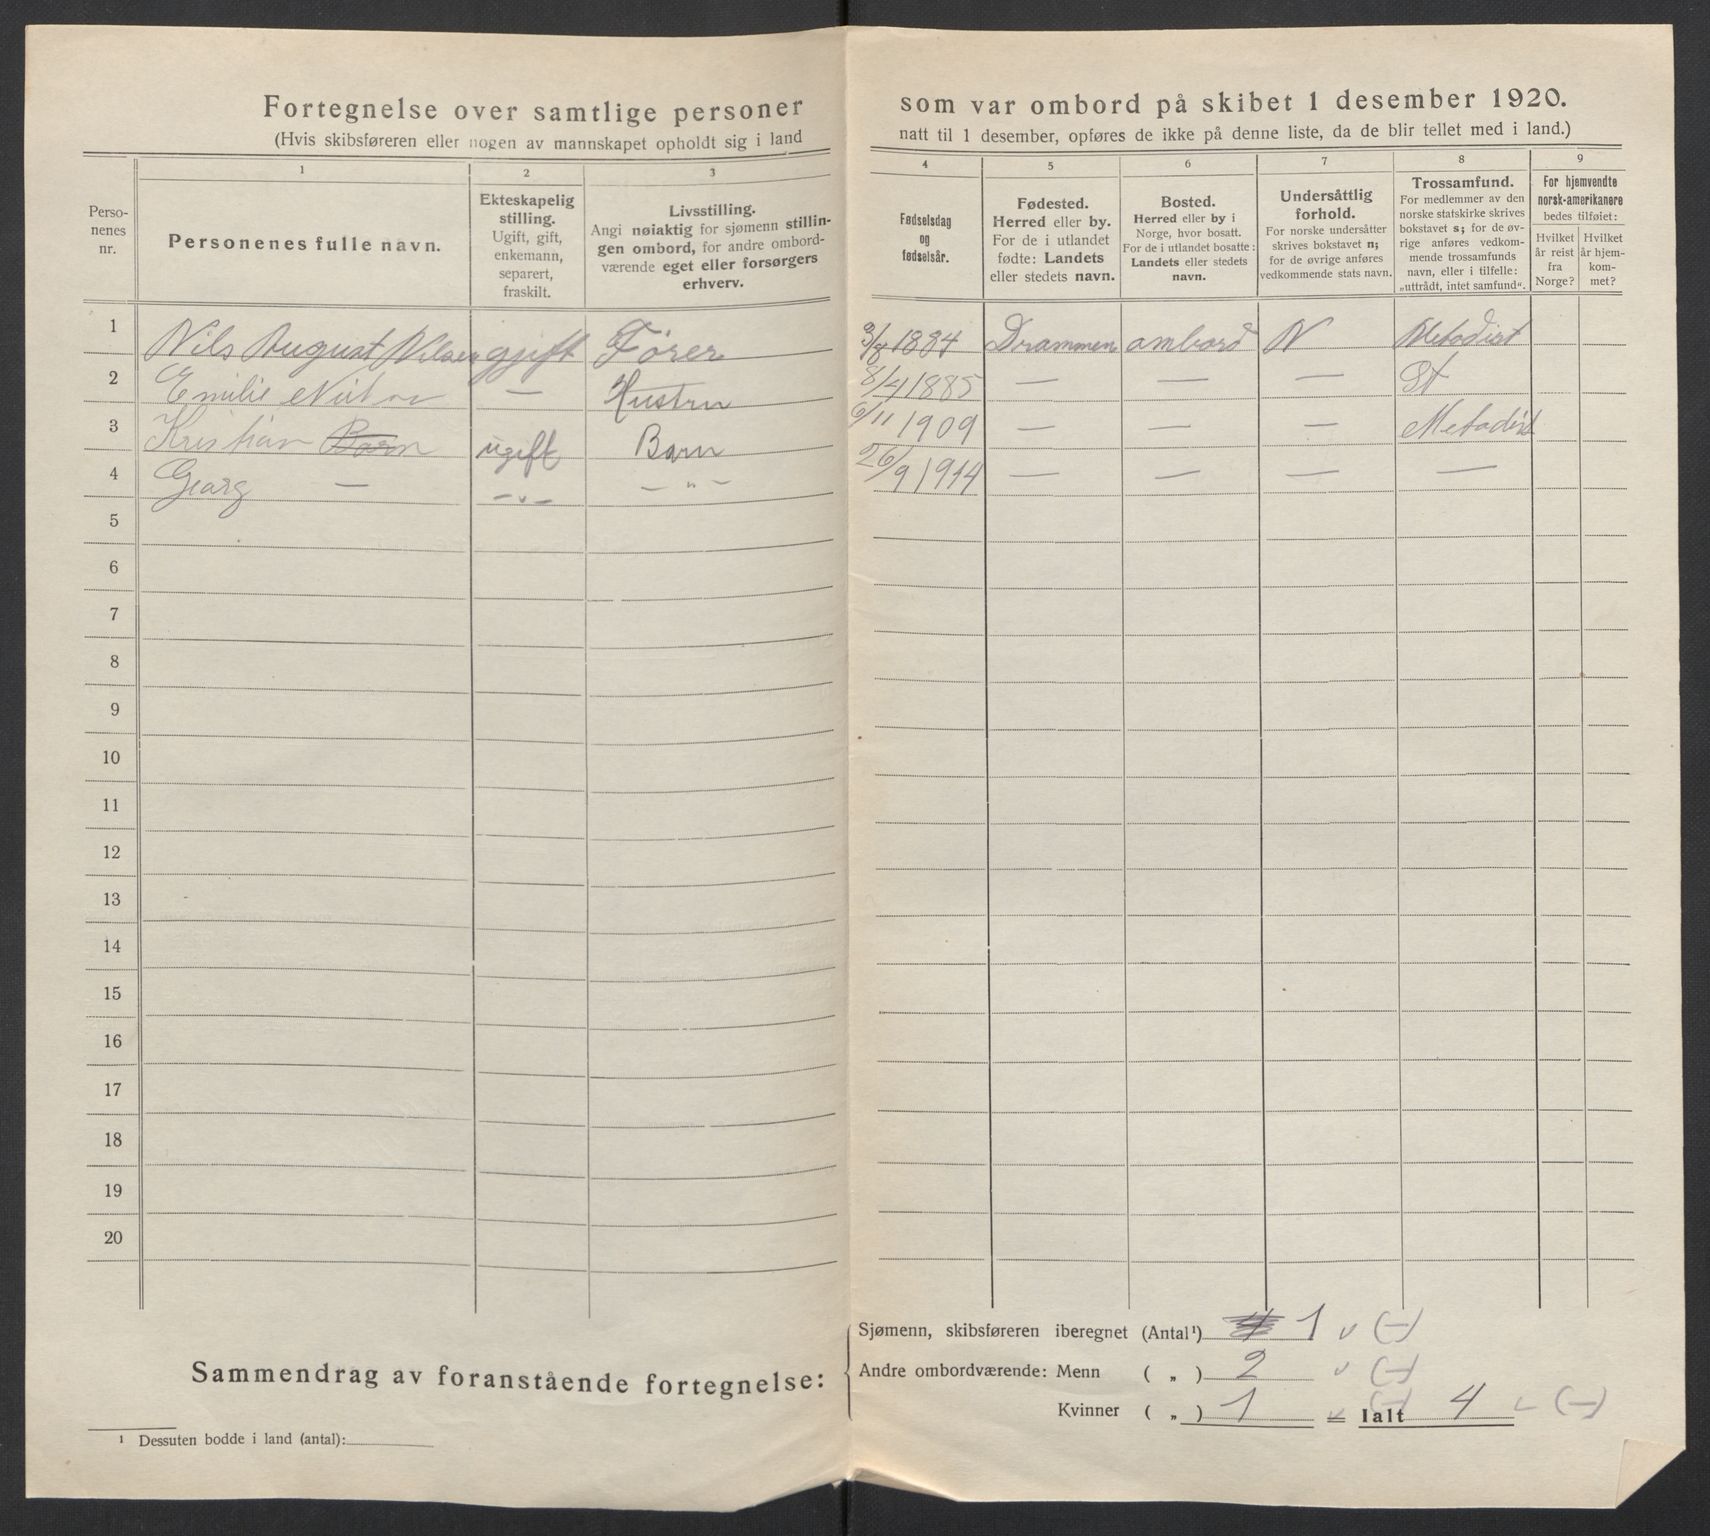 Fortegnelse over samtlige personer som var ombord på skibet 1 desember 1920.
(Hvis skibsføreren eller nogen av mannskapet opholdt sig i land natt til 1 desember, opføres de ikke på denne liste, da de blir tellet med i land.)
1 2 3 4 5 6 7 8 9
Perso-
nenes
nr.
Personenes fulle navn.
Ekteskapelig
stilling.
Ugift, gift,
enkemann,
separert,
fraskilt.
Livsstilling.
Angi nøiaktig for sjømenn stillin-
gen ombord, for andre ombord-
værende eget eller forsørgers
erhverv.
Fødselsdag
og
fødselsår.
Fødested.
Herred eller by.
For de i utlandet
fødte: Landets
eller stedets navn.
Bosted.
Herred eller by i
Norge, hvor bosatt.
For de i utlandet bosatte:
Landets eller stedets
navn.
Undersåttlig
forhold.
For norske undersåtter
skrives bokstavet n;
for de øvrige anføres
vedkommende stats navn.
Trossamfund.
For medlemmer av den
norske statskirke skrives
bokstavet s; for de øv-
rige anføres vedkom-
mende trossamfunds
navn, eller i tilfelle:
„uttrådt, intet samfund“.
For hjemvendte
norsk-amerikanere
bedes tilføiet:
Hvilket
år reist
fra
Norge?
Hvilket
år hjem-
kom-
met?
1 Nils August Nilsen gjift Fører 3/8 1884 Drammen ombord N Metodist
2 Emilie — Hustru 8/4 1885 — — — St
3 Kristian Barn ugift Barn 6/11 1909 — — — Metodist
4 Georg — -„- — " — 26/9 1914 — — — —
5
6
7
8
9
10
11
12
13
14
15
16
17
18
19
20
Sammendrag av foranstående fortegnelse:
Sjømenn, skibsføreren iberegnet (Antal¹) 1 v (—)
Andre ombordværende: Menn ( „ ) 2 v (—)
Kvinner ( „ ) 1 v (—) = Ialt 4 v (—)
¹ Dessuten bodde i land (antal):